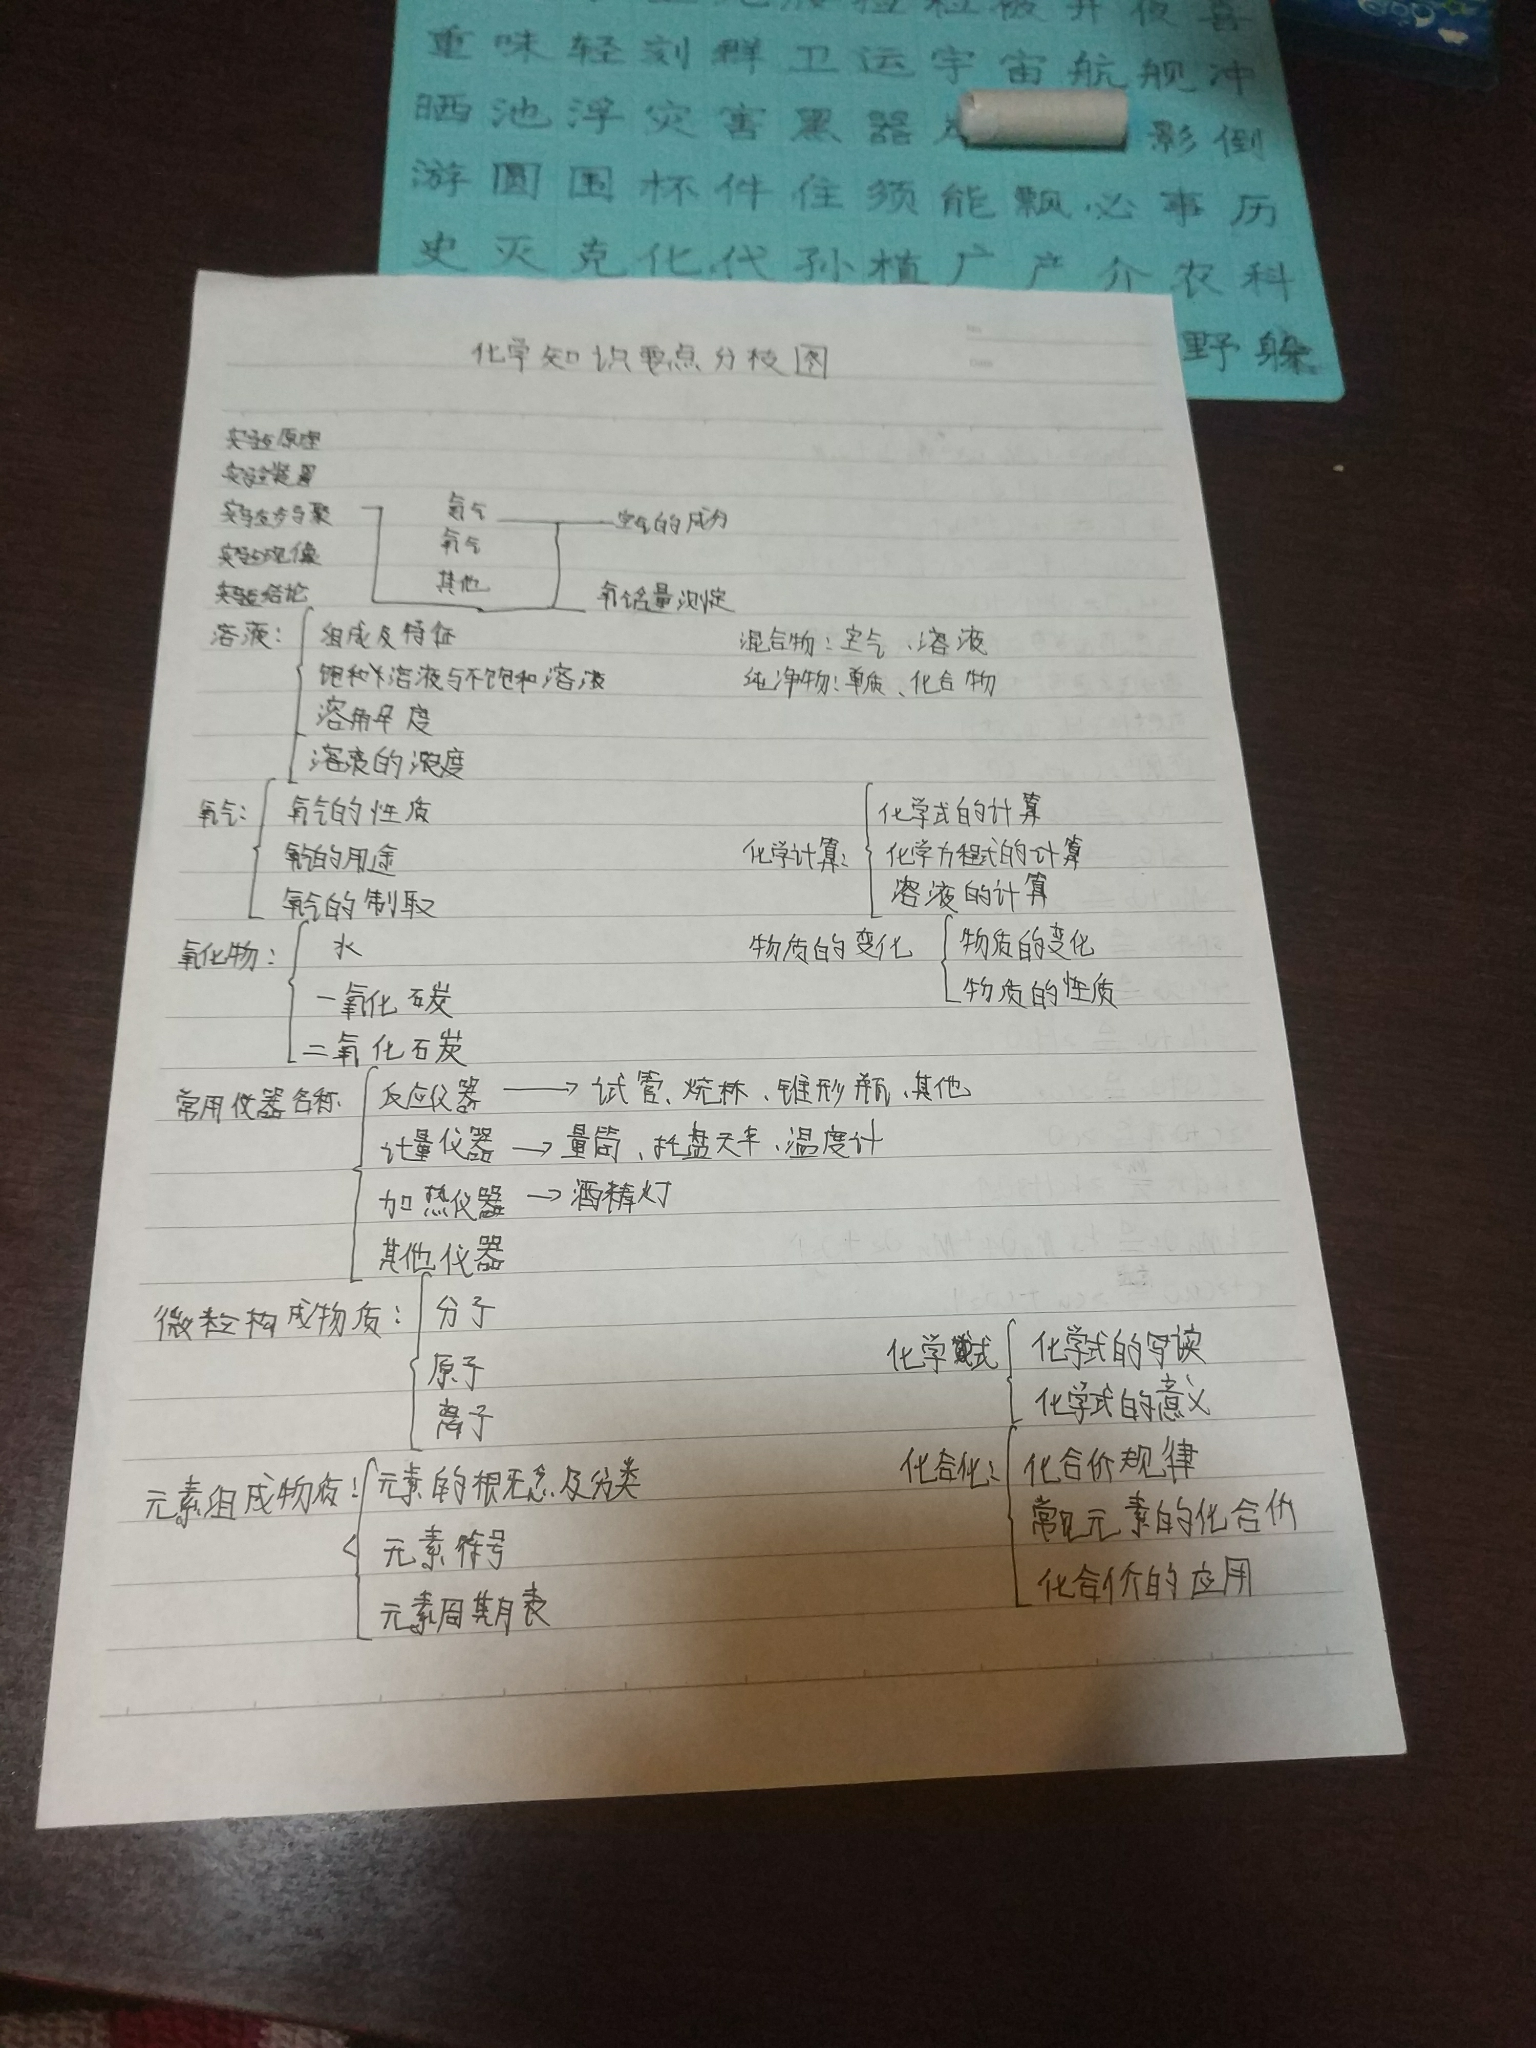 重味轻刻群卫运宇宙航舰冲
晒池浮灾害黑器 影倒
游圆围杯件住须能飘必事历
史灭克化代孙植广产介农科
野躲
化学知识重点分枝图
实验原理
实验装置
实验步骤
实验现像
实验结论
氮气 空气的成分
氧气
其他 氧含量测定
溶液: 组成及特征 混合物:空气、溶液
饱和溶液与不饱和溶液 纯净物:单质、化合物
溶解度
溶液的浓度
氧气: 氧气的性质 化学式的计算
氧气的用途 化学计算: 化学方程式的计算
氧气的制取 溶液的计算
氧化物: 水 物质的变化 物质的变化
一氧化碳 物质的性质
二氧化碳
常用仪器名称 反应仪器 → 试管、烧杯、锥形瓶、其他
计量仪器 → 量筒、托盘天平、温度计
加热仪器 → 酒精灯
其他仪器
微粒构成物质: 分子
原子 化学式 化学式的写读
离子 化学式的意义
元素组成物质: 元素的概念及分类 化合化: 化合价规律
元素符号 常见元素的化合价
元素周期表 化合价的应用